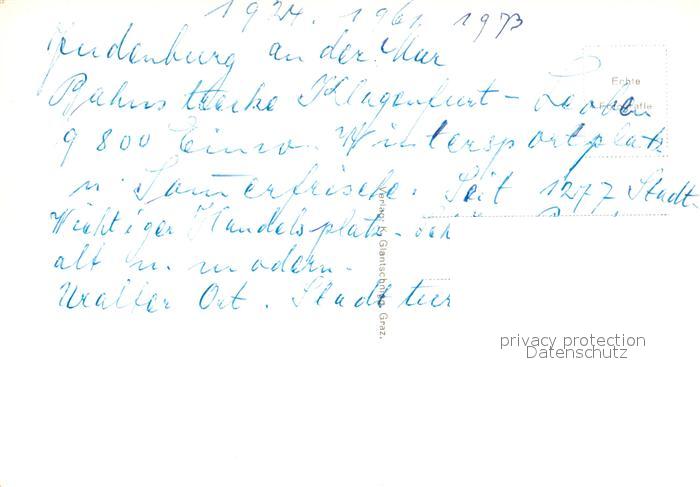 1924. 1961 1973
Judenburg an der Mur
Echte
Bahnstrecke Klagenfurt - Leoben
9800 Einw. Wintersportplatz
u. Sommerfrische. Seit 1277 Stadt.
Wichtiger Handelsplatz -
alt u. modern.
Uralter Ort. Stadt
Verlag: K. Glantschnigg, Graz.
privacy protection
Datenschutz